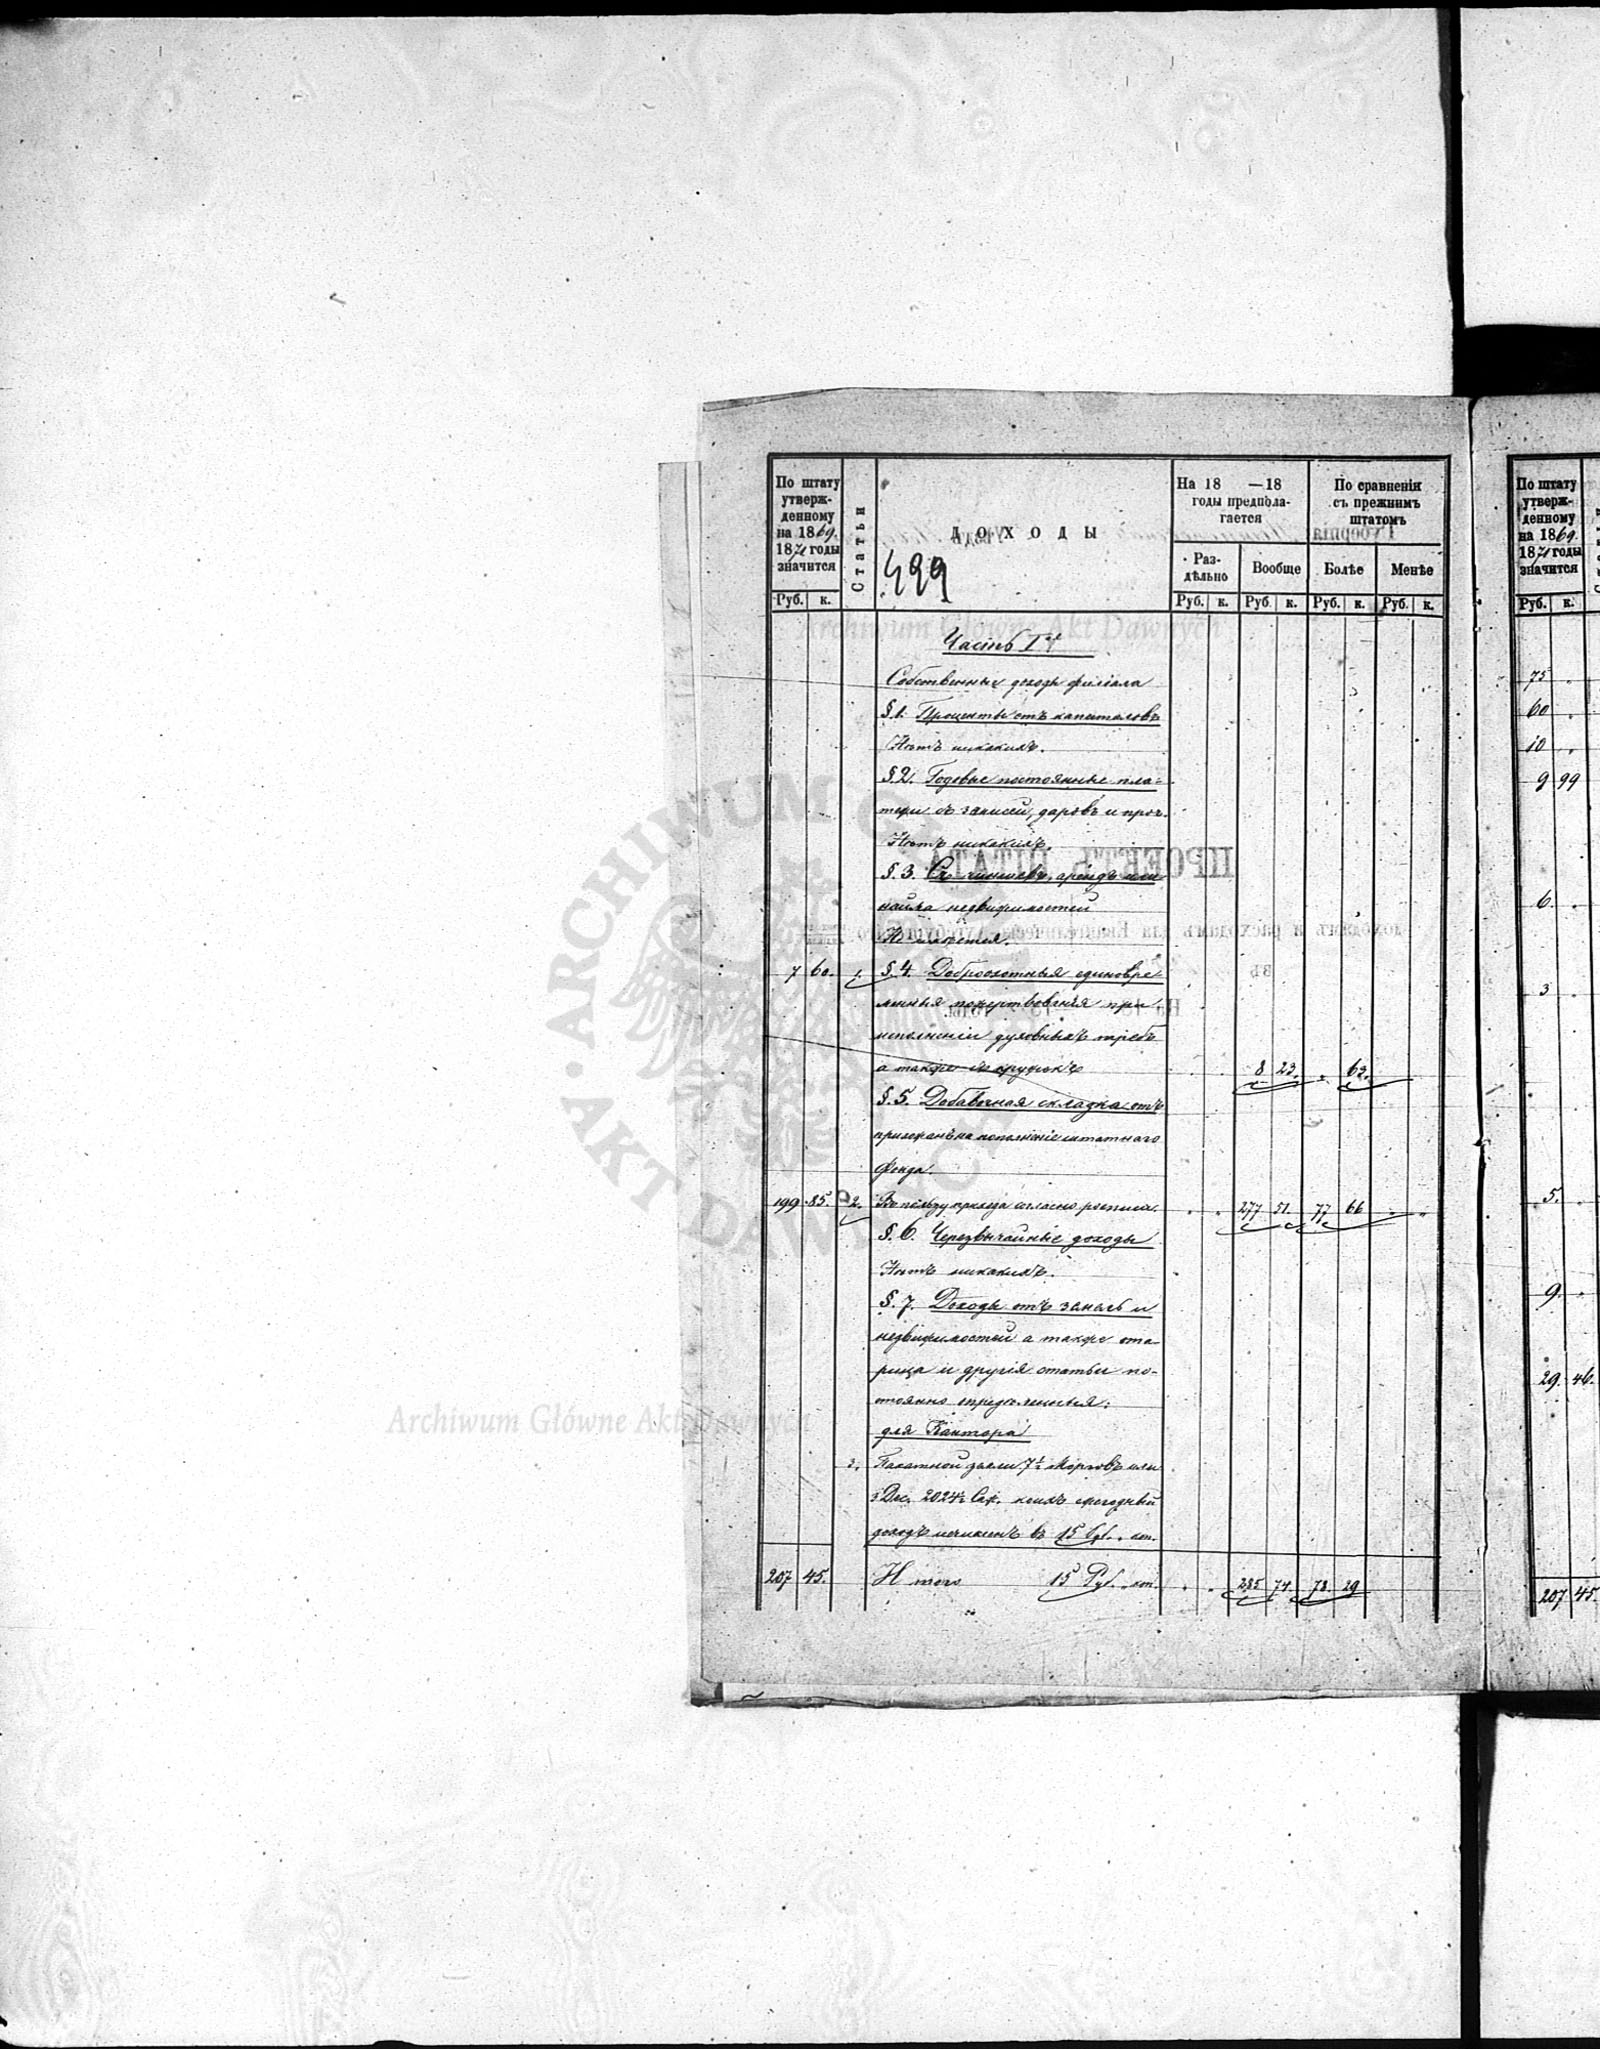 По штату
утверж-
денному
на 1869.
187½ годы
значится
Руб. к.
Статьи
ДОХОДЫ
499
На 18 —18
годы предпола-
гается
Раз-
дѣльно
Вообще
Руб. к. Руб. к.
По сравненія
съ прежнимъ
штатомъ
Болѣе Менѣе
Руб. к. Руб. к.
Archiwum Główne Akt Dawnych
Часть Iя
Собственные доходы филіала
§ 1. Проценты отъ капиталовъ
Нѣтъ никакихъ.
§. 2. Годовые постоянные пла-
тежи съ записей, даровъ и проч.
Нѣтъ никакихъ.
§. 3. Съ чиншовъ, арендъ или
найма недвижимостей
Не имѣется.
7 60. 1. §. 4. Доброхотныя единовре-
менныя пожертвованія при
исполненіи духовныхъ требъ
а также съ кружекъ 8 23. „ 63.
§. 5. Добавочная складка отъ
прихожанъ на пополненіе штатнаго
фонда.
199 85. 2. Въ пользу прихода согласно росписи. „ „ 277 51. 77 66 „ „
§. 6. Черезвычайные доходы
Нѣтъ никакихъ.
§. 7. Доходы отъ земель и
недвижимостей а также
и другія статьи по-
стоянно опредѣленныя:
для Кантора
3. Пахатной земли 7½ Морговъ или
3 Дес. 2024½ Саж. коихъ ежегодный
доходъ исчисленъ въ 15 Руб. „ коп.
207 45. Итого 15 Руб. „ коп. „ „ 285 74. 78 29
ARCHIWUM GŁÓWNE AKT DAWNYCH
Archiwum Główne Akt Dawnych
По штату
утверж-
денному
на 1869.
187½ годы
значится
Руб. к.
75 „
60 „
10 „
9 99
6. „
3 „
5. „
9. „
29. 46.
207 45.